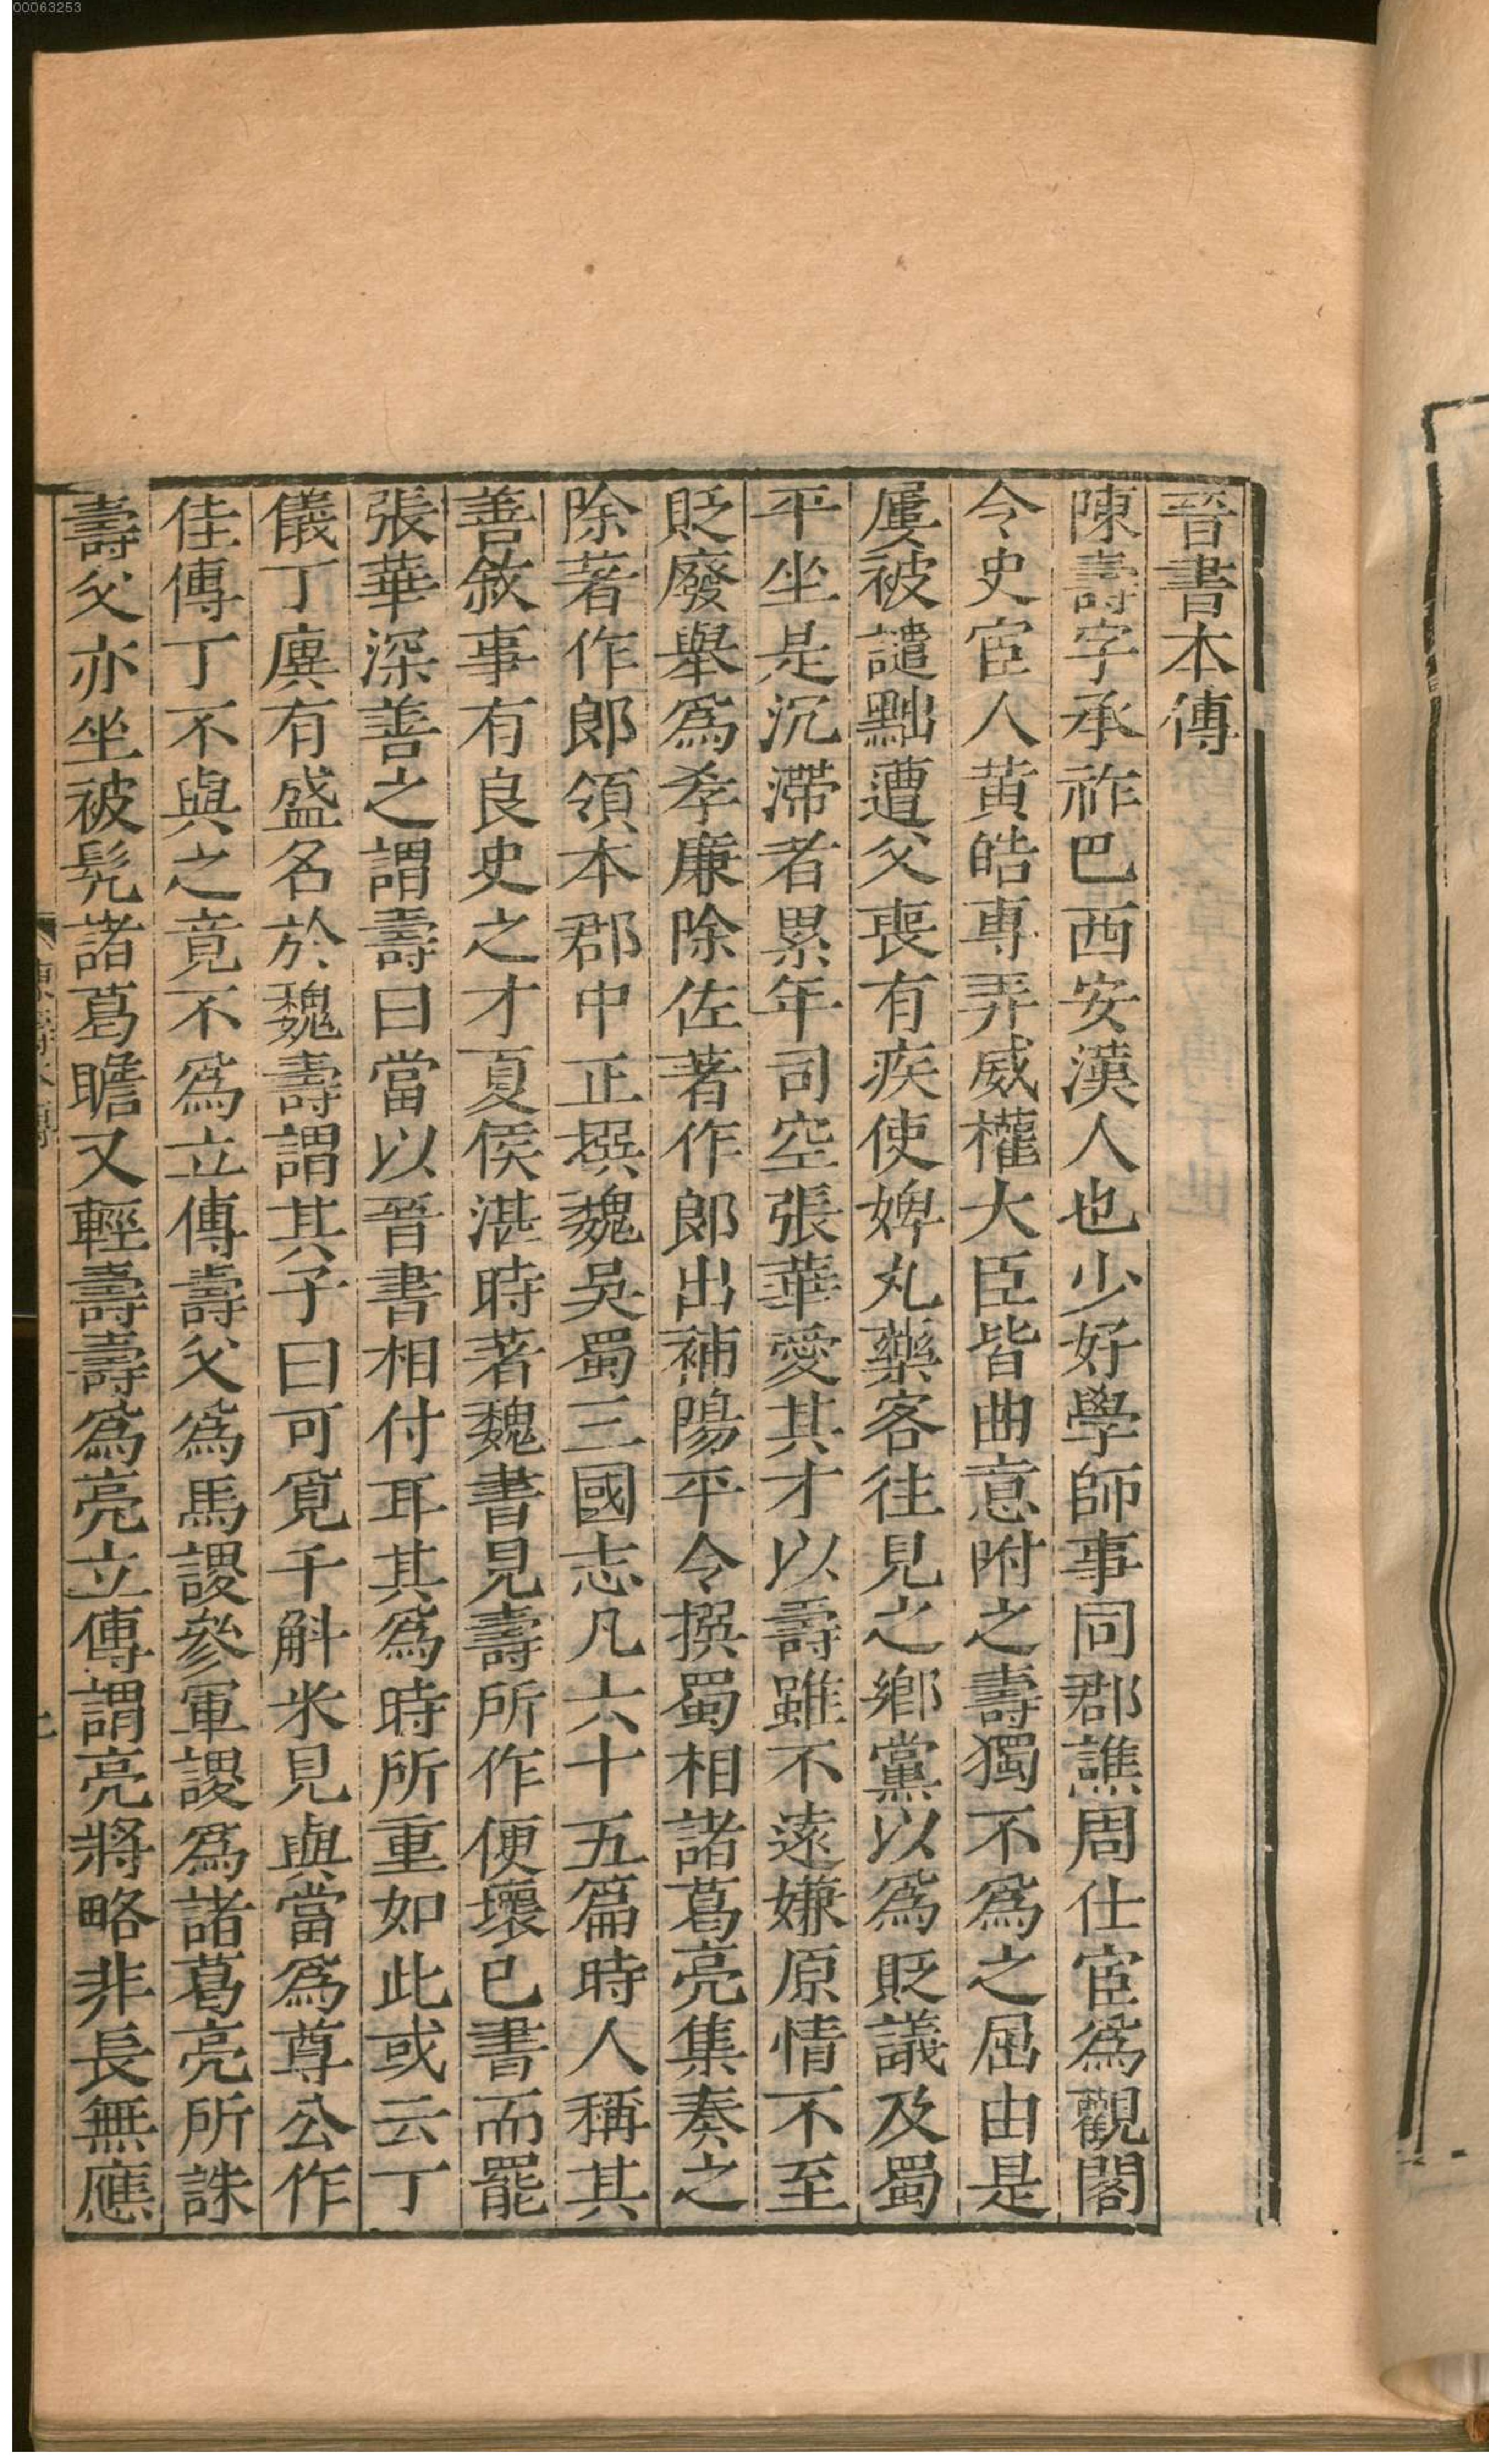 00063253
晉書本傳
陳壽字承祚巴西安漢人也少好學師事同郡譙周仕宦爲觀閣
令史宦人黃皓專弄威權大臣皆曲意附之壽獨不爲之屈由是
屢被譴黜遭父喪有疾使婢丸藥客往見之鄉黨以爲貶議及蜀
平坐是沉滯者累年司空張華愛其才以壽雖不遠嫌原情不至
貶廢舉爲孝廉除佐著作郎出補陽平令撰蜀相諸葛亮集奏之
除著作郎領本郡中正撰魏吳蜀三國志凡六十五篇時人稱其
善敘事有良史之才夏侯湛時著魏書見壽所作便壞已書而罷
張華深善之謂壽曰當以晉書相付耳其爲時所重如此或云丁
儀丁廙有盛名於魏壽謂其子曰可覓千斛米見與當爲尊公作
佳傳丁不與之竟不爲立傳壽父爲馬謖參軍謖爲諸葛亮所誅
壽父亦坐被髡諸葛瞻又輕壽壽爲亮立傳謂亮將略非長無應